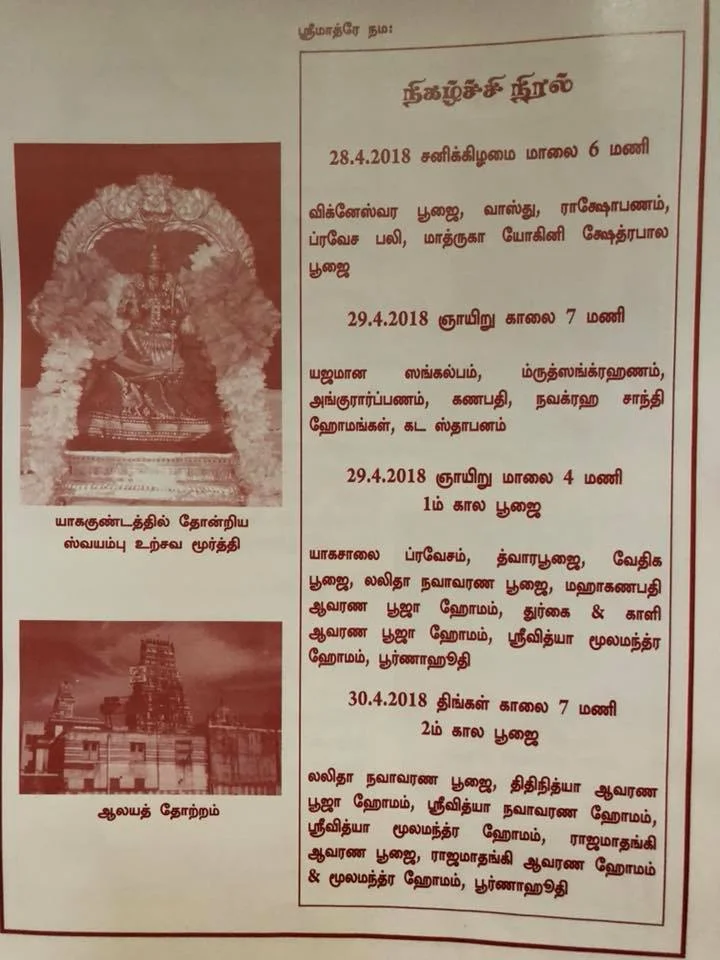 ஸ்ரீமாத்ரே நம:
நிகழ்ச்சி நிரல்
28.4.2018 சனிக்கிழமை மாலை 6 மணி
விக்னேஸ்வர பூஜை, வாஸ்து, ராக்ஷோபணம்,
ப்ரவேச பலி, மாத்ருகா யோகினி க்ஷேத்ரபால
பூஜை
29.4.2018 ஞாயிறு காலை 7 மணி
யஜமான ஸங்கல்பம், ம்ருத்ஸங்க்ரஹணம்,
அங்குரார்ப்பணம், கணபதி, நவக்ரஹ சாந்தி
ஹோமங்கள், கட ஸ்தாபனம்
29.4.2018 ஞாயிறு மாலை 4 மணி
1ம் கால பூஜை
யாகசாலை ப்ரவேசம், த்வாரபூஜை, வேதிக
பூஜை, லலிதா நவாவரண பூஜை, மஹாகணபதி
ஆவரண பூஜா ஹோமம், துர்கை & காளி
ஆவரண பூஜா ஹோமம், ஸ்ரீவித்யா மூலமந்த்ர
ஹோமம், பூர்ணாஹூதி
30.4.2018 திங்கள் காலை 7 மணி
2ம் கால பூஜை
லலிதா நவாவரண பூஜை, திதிநித்யா ஆவரண
பூஜா ஹோமம், ஸ்ரீவித்யா நவாவரண ஹோமம்,
ஸ்ரீவித்யா மூலமந்த்ர ஹோமம், ராஜமாதங்கி
ஆவரண பூஜை, ராஜமாதங்கி ஆவரண ஹோமம்
& மூலமந்த்ர ஹோமம், பூர்ணாஹூதி
யாககுண்டத்தில் தோன்றிய
ஸ்வயம்பு உற்சவ மூர்த்தி
ஆலயத் தோற்றம்